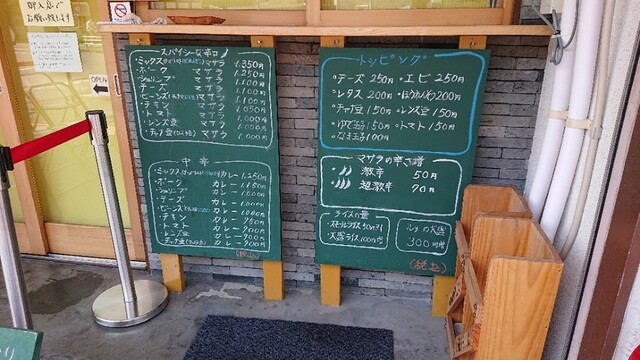 OPEN
スパイシーな辛口
・ミックス マサラ 1,350円
・ポーク マサラ 1,250円
・シュリンプ マサラ 1,100円
・チーズ マサラ 1,100円
・ビーンズ マサラ 1,100円
・チキン マサラ 1,050円
・トマト マサラ 1,000円
・レンズ豆 マサラ 1,000円
・チャナ豆 マサラ 1,000円
中辛
・ミックス カレー 1,250円
・ポーク カレー 1,150円
・シュリンプ カレー 1,000円
・チーズ カレー 1,000円
・ビーンズ カレー 1,000円
・チキン カレー 950円
・トマト カレー 900円
・レンズ豆 カレー 900円
・チャナ豆 カレー 900円
(税込)
トッピング
・チーズ 250円 ・エビ 250円
・レタス 200円 ・ほうれん草 200円
・チャナ豆 150円 ・レンズ豆 150円
・ゆで玉子 150円 ・トマト 150円
・なま玉子 100円
マサラの辛さ増
激辛 50円
超激辛 70円
ライスの量
・スモールライス 50円引
・大盛ライス 100円増
ルーの大盛
300円増
(税込)